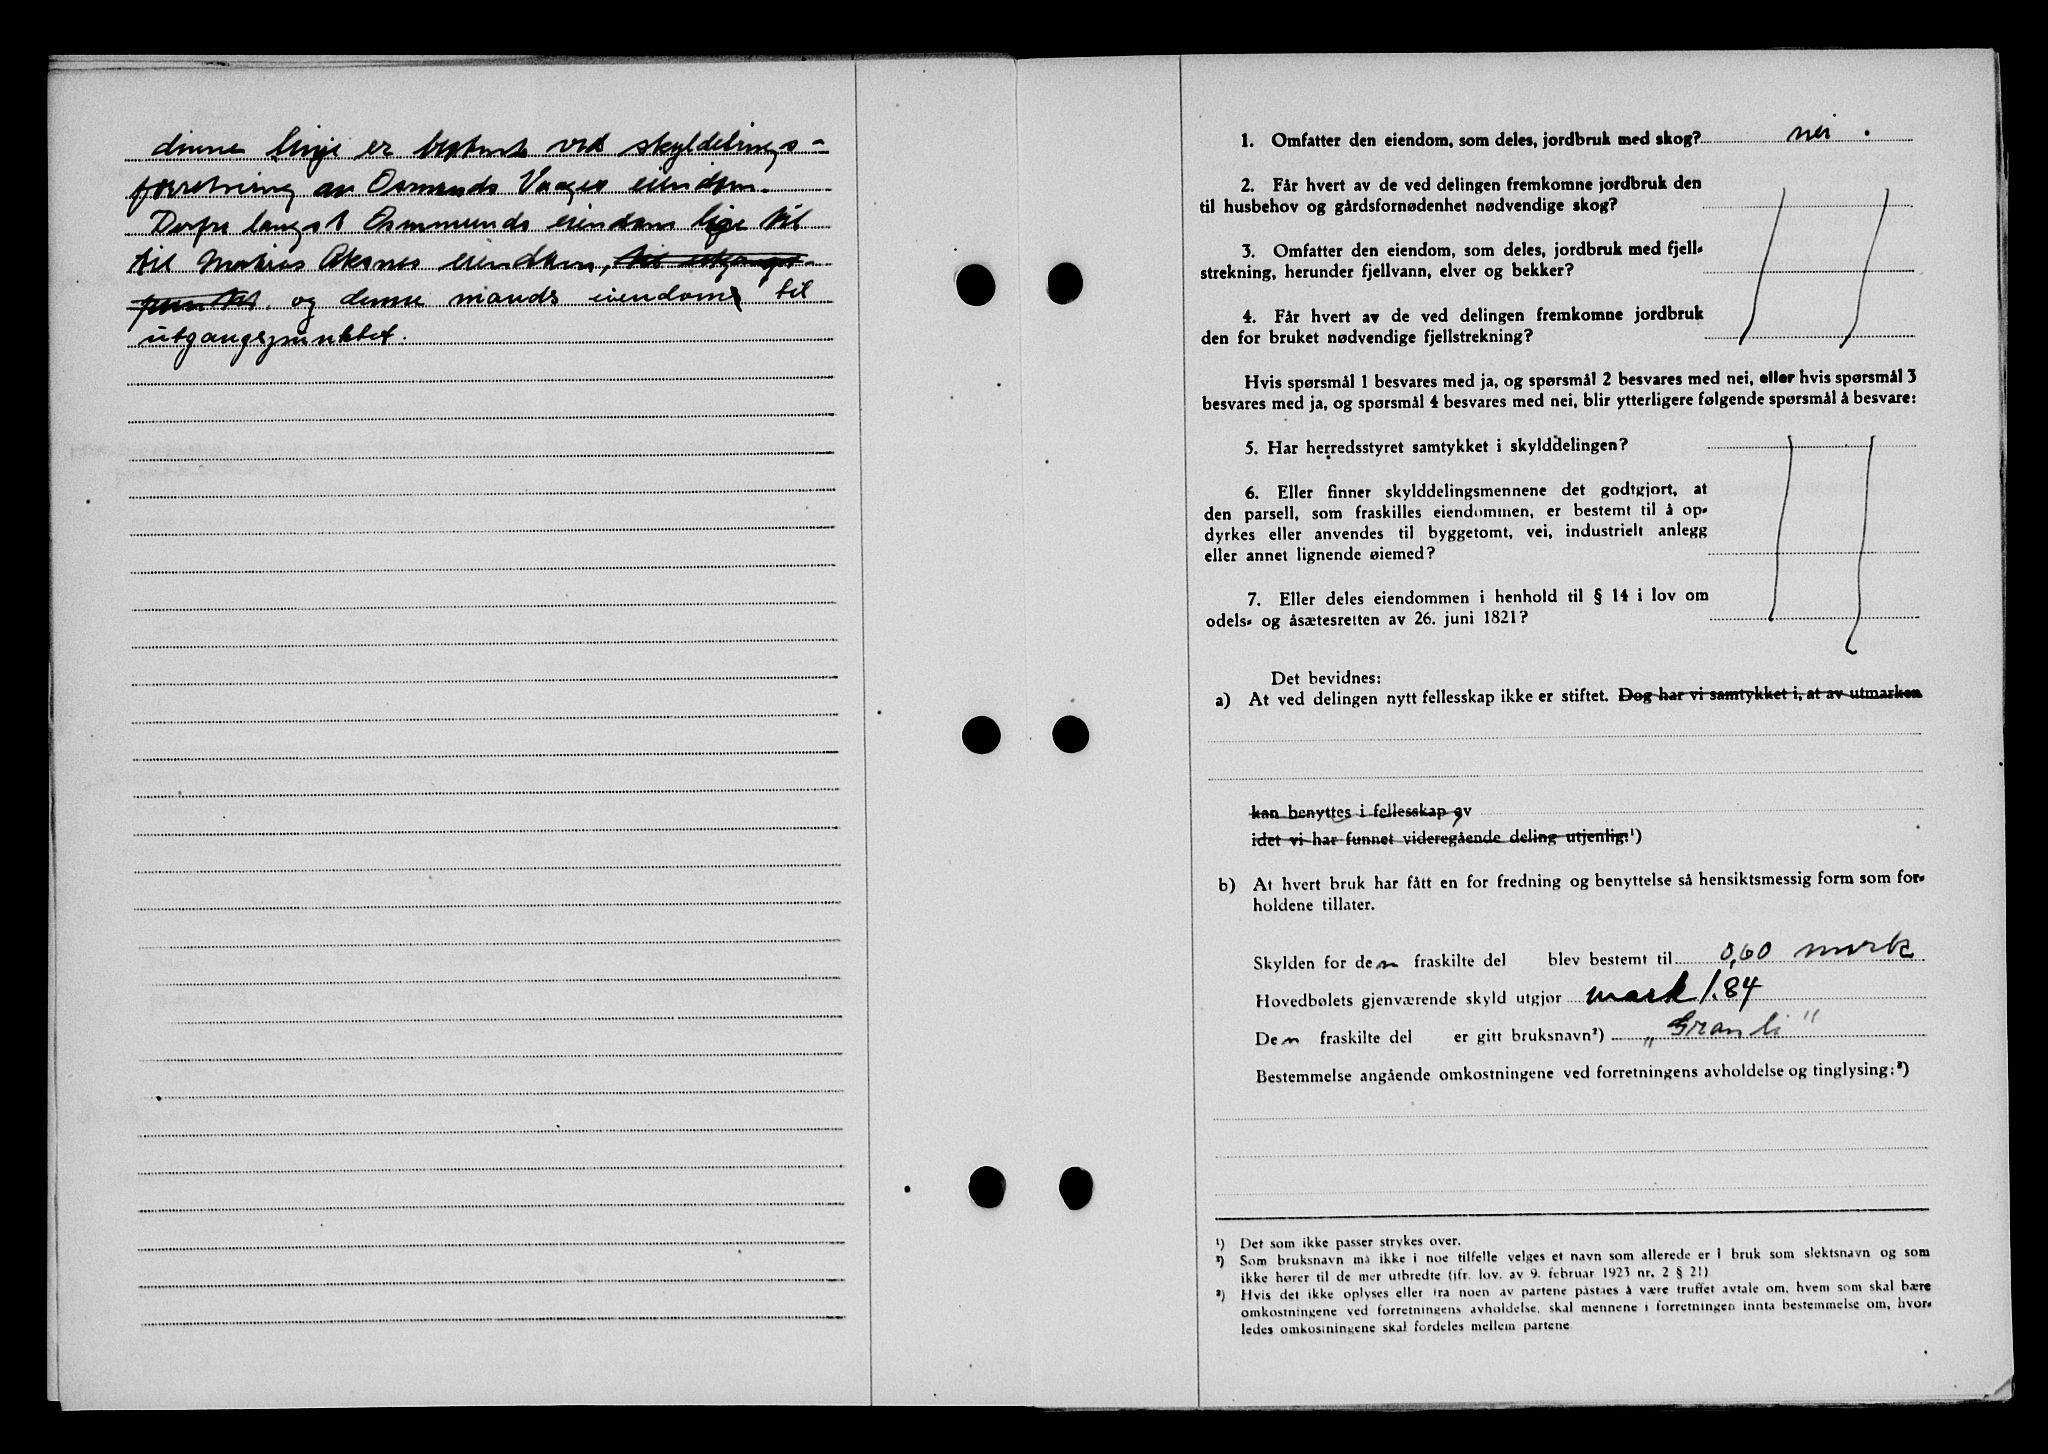 denne linje er bestemt ved skyldelings-
forretning av Osmunds Vaages eiendom.
Derfra langst Osmmunds eiendom lige til
til Matias Aksnes eiendom, til utgangs-
punktet. og denne mands eiendom til
utgangspunktet.
1. Omfatter den eiendom, som deles, jordbruk med skog? nei.
2. Får hvert av de ved delingen fremkomne jordbruk den
til husbehov og gårdsfornødenhet nødvendige skog?
3. Omfatter den eiendom, som deles, jordbruk med fjell-
strekning, herunder fjellvann, elver og bekker?
4. Får hvert av de ved delingen fremkomne jordbruk
den for bruket nødvendige fjellstrekning?
Hvis spørsmål 1 besvares med ja, og spørsmål 2 besvares med nei, eller hvis spørsmål 3
besvares med ja, og spørsmål 4 besvares med nei, blir ytterligere følgende spørsmål å besvare:
5. Har herredsstyret samtykket i skylddelingen?
6. Eller finner skylddelingsmennene det godtgjort, at
den parsell, som fraskilles eiendommen, er bestemt til å op-
dyrkes eller anvendes til byggetomt, vei, industrielt anlegg
eller annet lignende øiemed?
7. Eller deles eiendommen i henhold til § 14 i lov om
odels- og åsætesretten av 26. juni 1821?
Det bevidnes:
a) At ved delingen nytt fellesskap ikke er stiftet. Dog har vi samtykket i, at av utmarken
kan benyttes i fellesskap av
idet vi har funnet videregående deling utjenlig.¹)
b) At hvert bruk har fått en for fredning og benyttelse så hensiktsmessig form som for-
holdene tillater.
Skylden for den fraskilte del blev bestemt til 0,60 mark
Hovedbølets gjenværende skyld utgjør mark 1.84
Den fraskilte del er gitt bruksnavn²) „Granli"
Bestemmelse angående omkostningene ved forretningens avholdelse og tinglysing:³)
¹) Det som ikke passer strykes over.
²) Som bruksnavn må ikke i noe tilfelle velges et navn som allerede er i bruk som slektsnavn og som
ikke hører til de mer utbredte (jfr. lov. av 9. februar 1923 nr. 2 § 21).
³) Hvis det ikke oplyses eller fra noen av partene påståes å være truffet avtale om, hvem som skal bære
omkostningene ved forretningens avholdelse, skal mennene i forretningen innta bestemmelse om, hvor-
ledes omkostningene skal fordeles mellem partene.